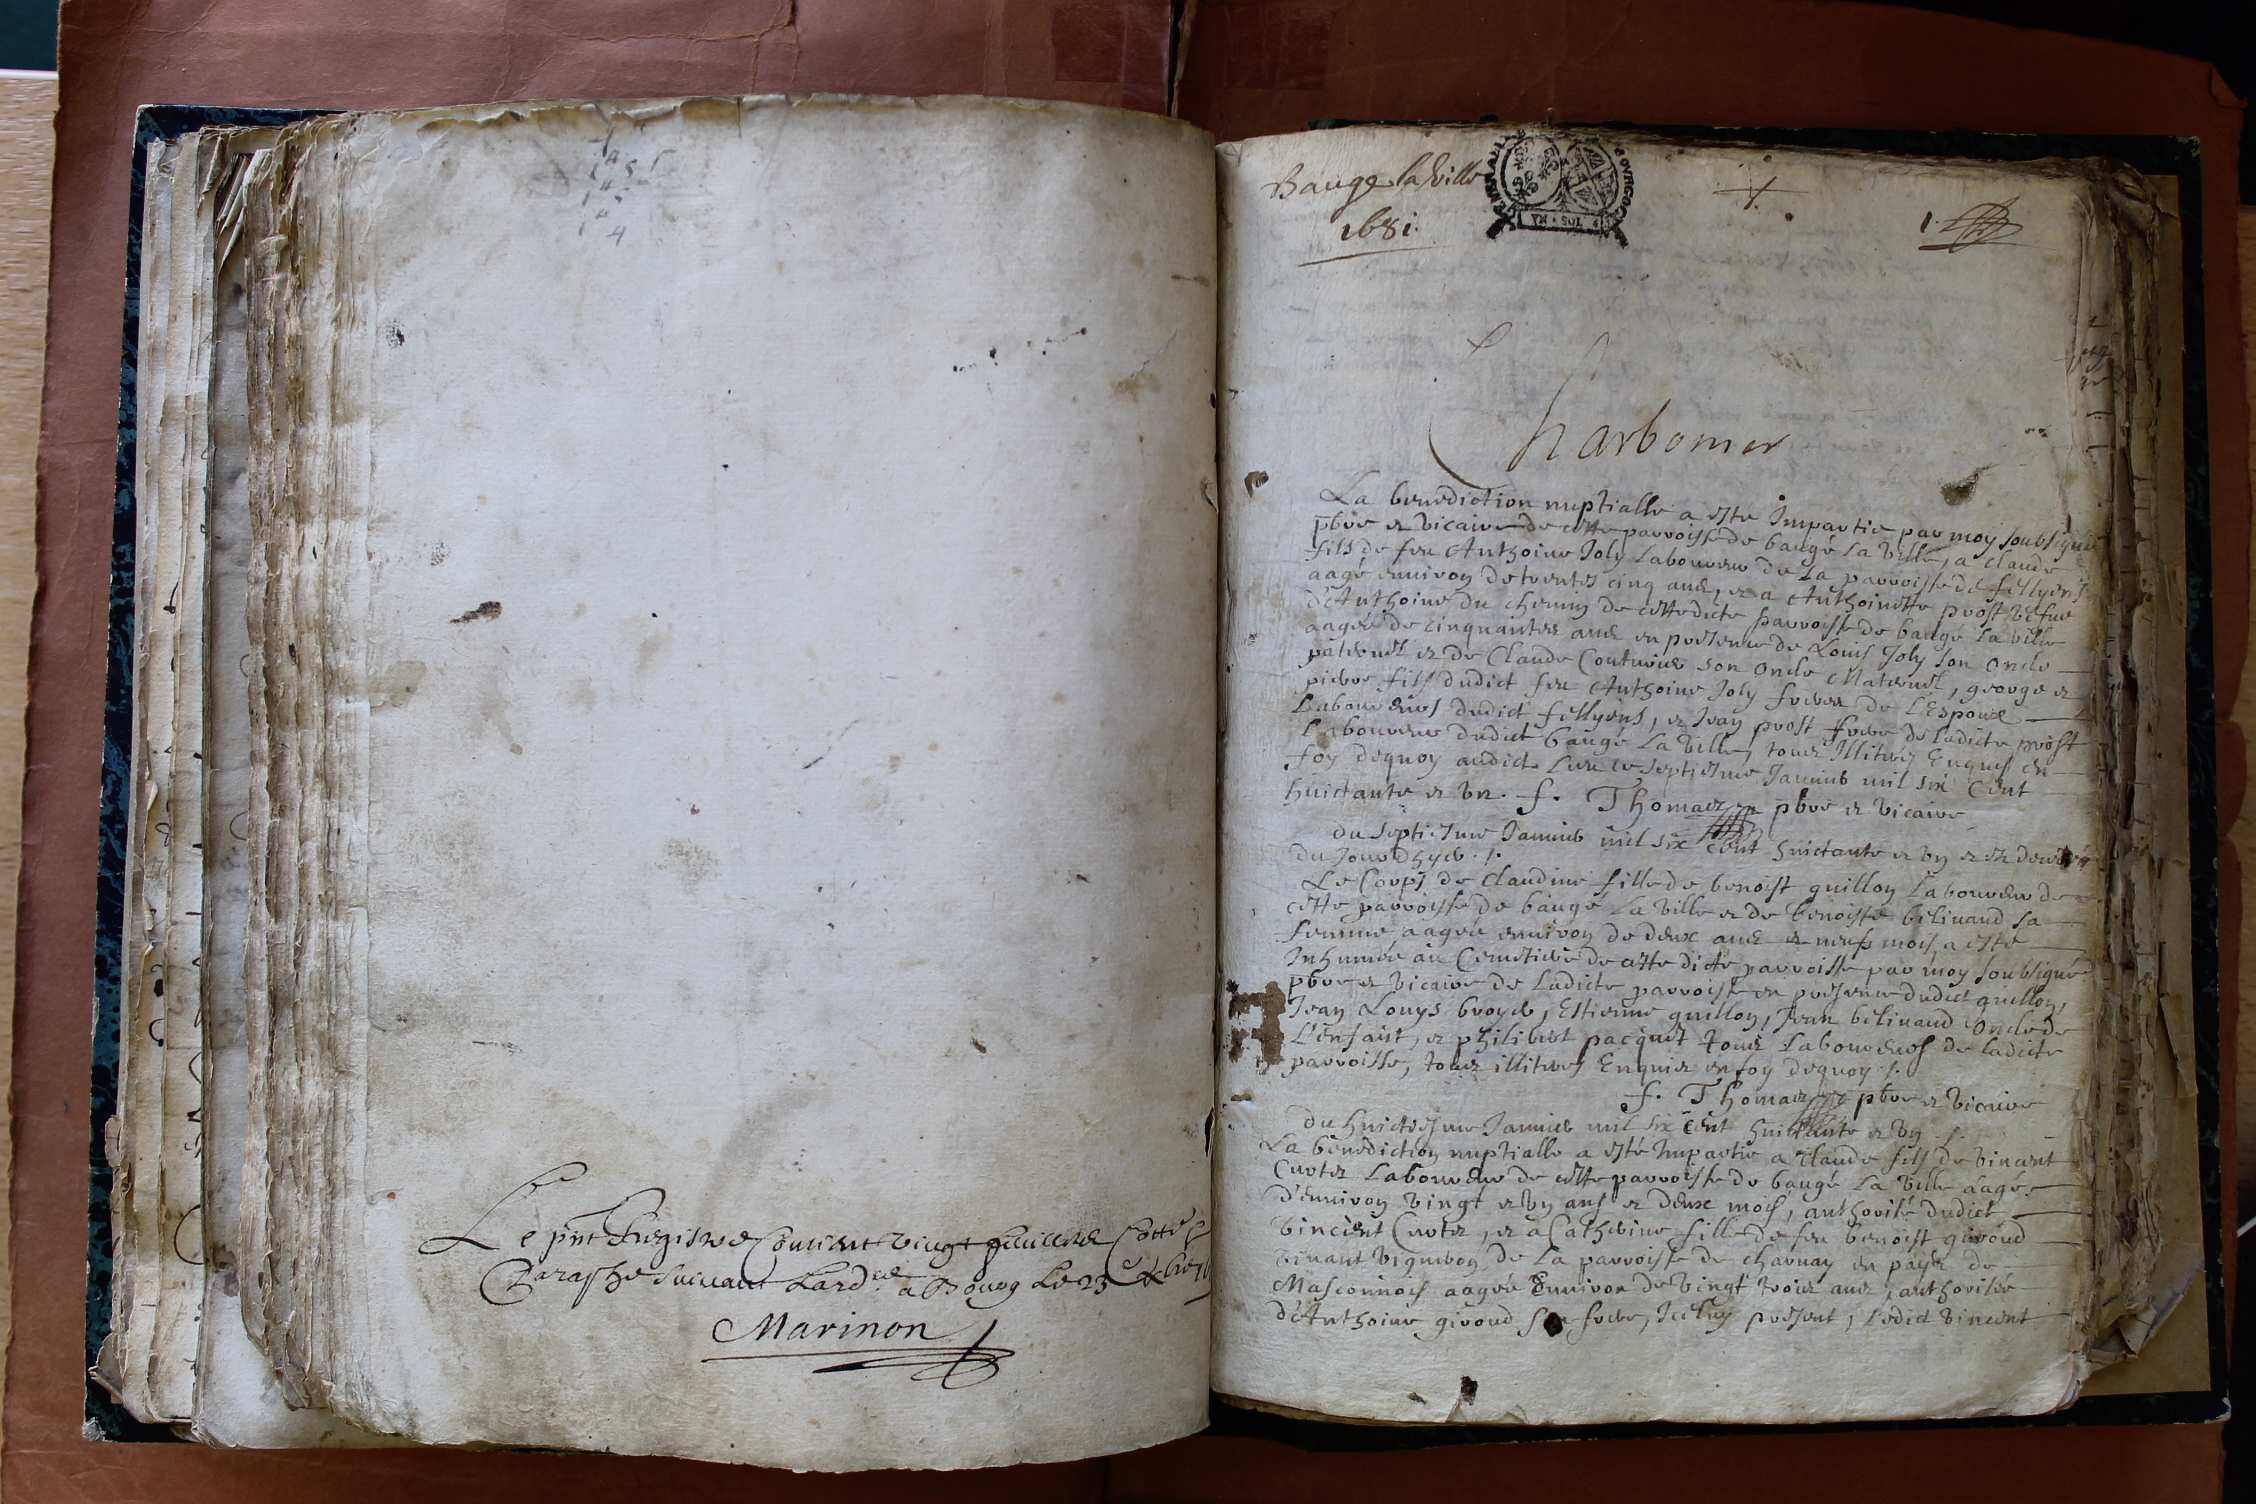 4
Le pnt Registre Contient vingt feuilletz Cottés
Paraphé suivant Lard.ce a Bourg Le 23
Marinon
Baugé la Ville
1681.
GENERALLE
BOVRGOG
VN · SOL
1.
Charbonier
La benediction nuptialle a esté Impartie par moy soubsigné
pbre et vicaire de cette parroisse de baugé La Ville, a Claude
fils de feu Anthoine Joly Laboureur de La parroisse de fellyens
aagé environ de trentes cinq ans, et a Anthoinette prost vefue
d'Anthoine du chemin de cettedicte parroisse de baugé La ville
aagée de cinquantes ans en presence de Louis Joly son oncle
paternel et de Claude Couturier son oncle Maternel, george et
pierre fils dudict feu Anthoine Joly freres de L'Espoux
Laboureurs dudict fellyens, et Jean prost frere de Ladicte prost
Laboureur dudict baugé La Ville, tous Illitrés Enquis en
foy dequoy audict Lieu ce septiesme Janvier mil six Cent
huictante et un. f. Thomas pbre et vicaire
du septiesme Janvier mil six cent huictante et un et
du Jourdhyer ./.
Le Corps de Claudine fille de benoist guillon Laboureur de
cette parroisse de baugé La Ville et de benoiste belinand sa
femme aagée environ de deux ans et neufs mois a esté
Inhumée au Cemetiere de cette dicte parroisse par moy soubsigné
pbre et vicaire de Ladicte parroisse en presence dudict guillon,
Jean Louys broyer, Estienne guillon, Jean belinand oncle de
L'enfant, et philibert pacquet tous Laboureurs de ladicte
parroisse, tous illitres Enquis en foy dequoy ./.
f. Thomas pbre et vicaire
du huictiesme Janvier mil six cent huictante et un ./.
La benediction nuptialle a esté Impartie a Claude fils de vincent
Curtes Laboureur de cette parroisse de baugé La Ville aagé
d'environ vingt et un ans et deux mois, authorité dudict
vincent Curtes, et a Catherine fille de feu benoist giroud
vivant vigneron de La parroisse de charnay en pays de
Masconnois aagée Environ de vingt trois ans, authoritée
d'Anthoine giroud son frere, Icelluy present, Ledict vincent